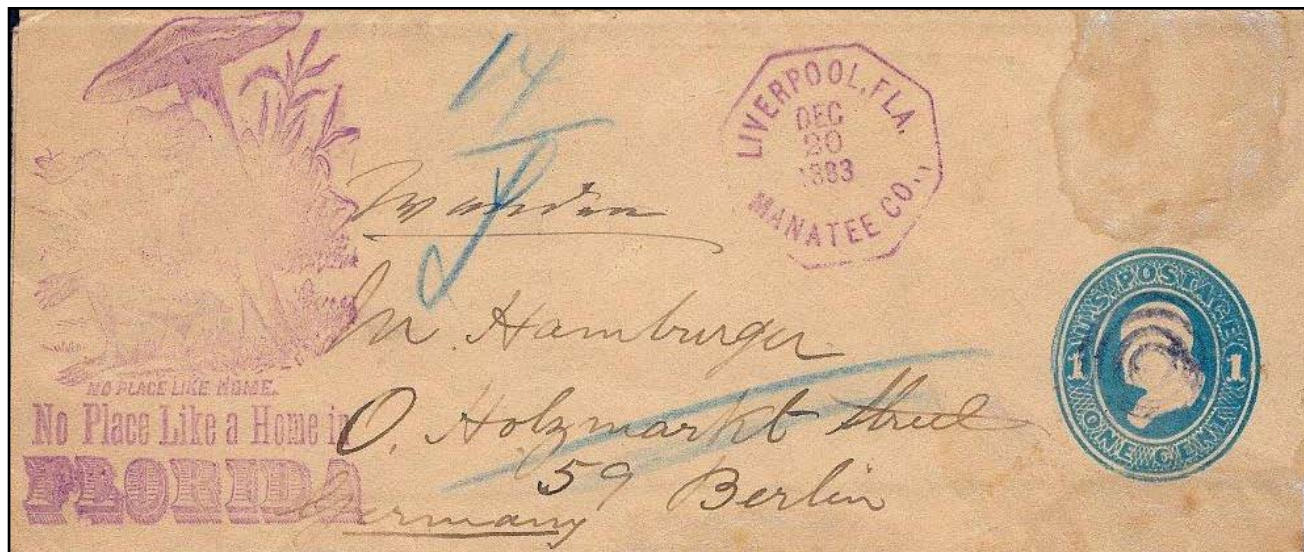 14
LIVERPOOL, FLA.
DEC
20
1883
MANATEE CO.,
M. Hamburger
O. Holzmarkt Street
59 Berlin
Germany
NO PLACE LIKE HOME.
No Place Like a Home in
FLORIDA
U.S. POSTAGE
1 1
ONE CENT